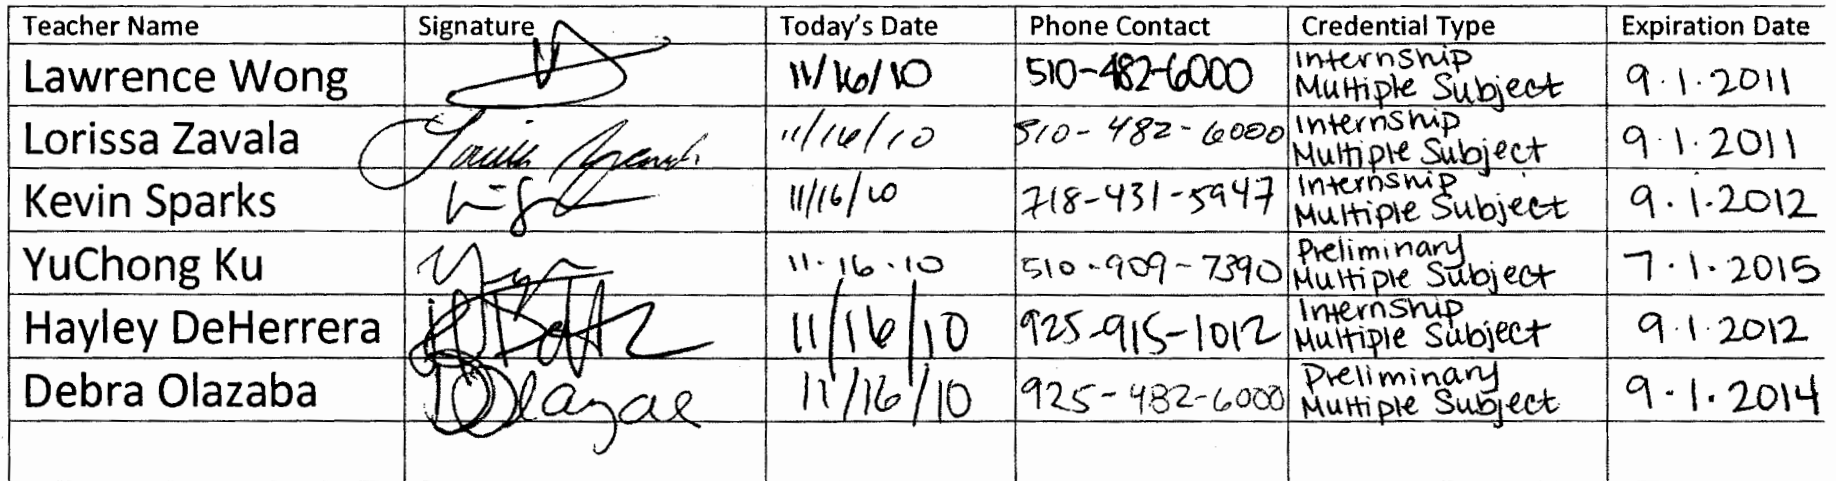 Teacher Name Signature Today's Date Phone Contact Credential Type Expiration Date
Lawrence Wong 11/16/10 510-482-6000 Internship Multiple Subject 9.1.2011
Lorissa Zavala 11/16/10 510-482-6000 Internship Multiple Subject 9.1.2011
Kevin Sparks 11/16/10 718-431-5947 Internship Multiple Subject 9.1.2012
YuChong Ku 11.16.10 510-909-7390 Preliminary Multiple Subject 7.1.2015
Hayley DeHerrera 11/16/10 925-915-1012 Internship Multiple Subject 9.1.2012
Debra Olazaba 11/16/10 925-482-6000 Preliminary Multiple Subject 9.1.2014